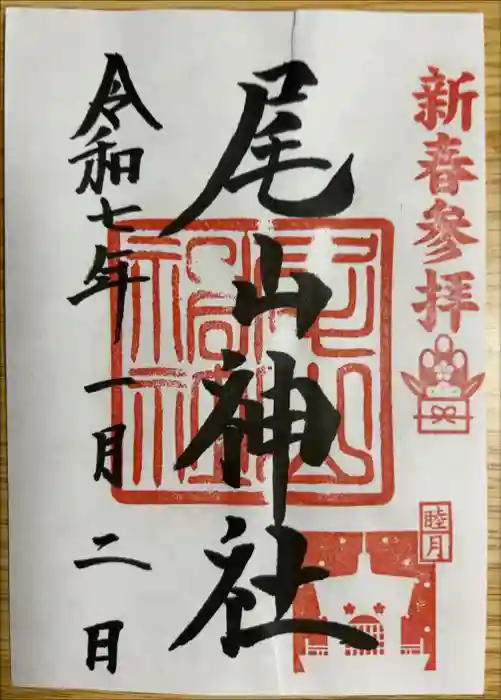 新春參拝
睦月
尾山神社
令和七年一月二日